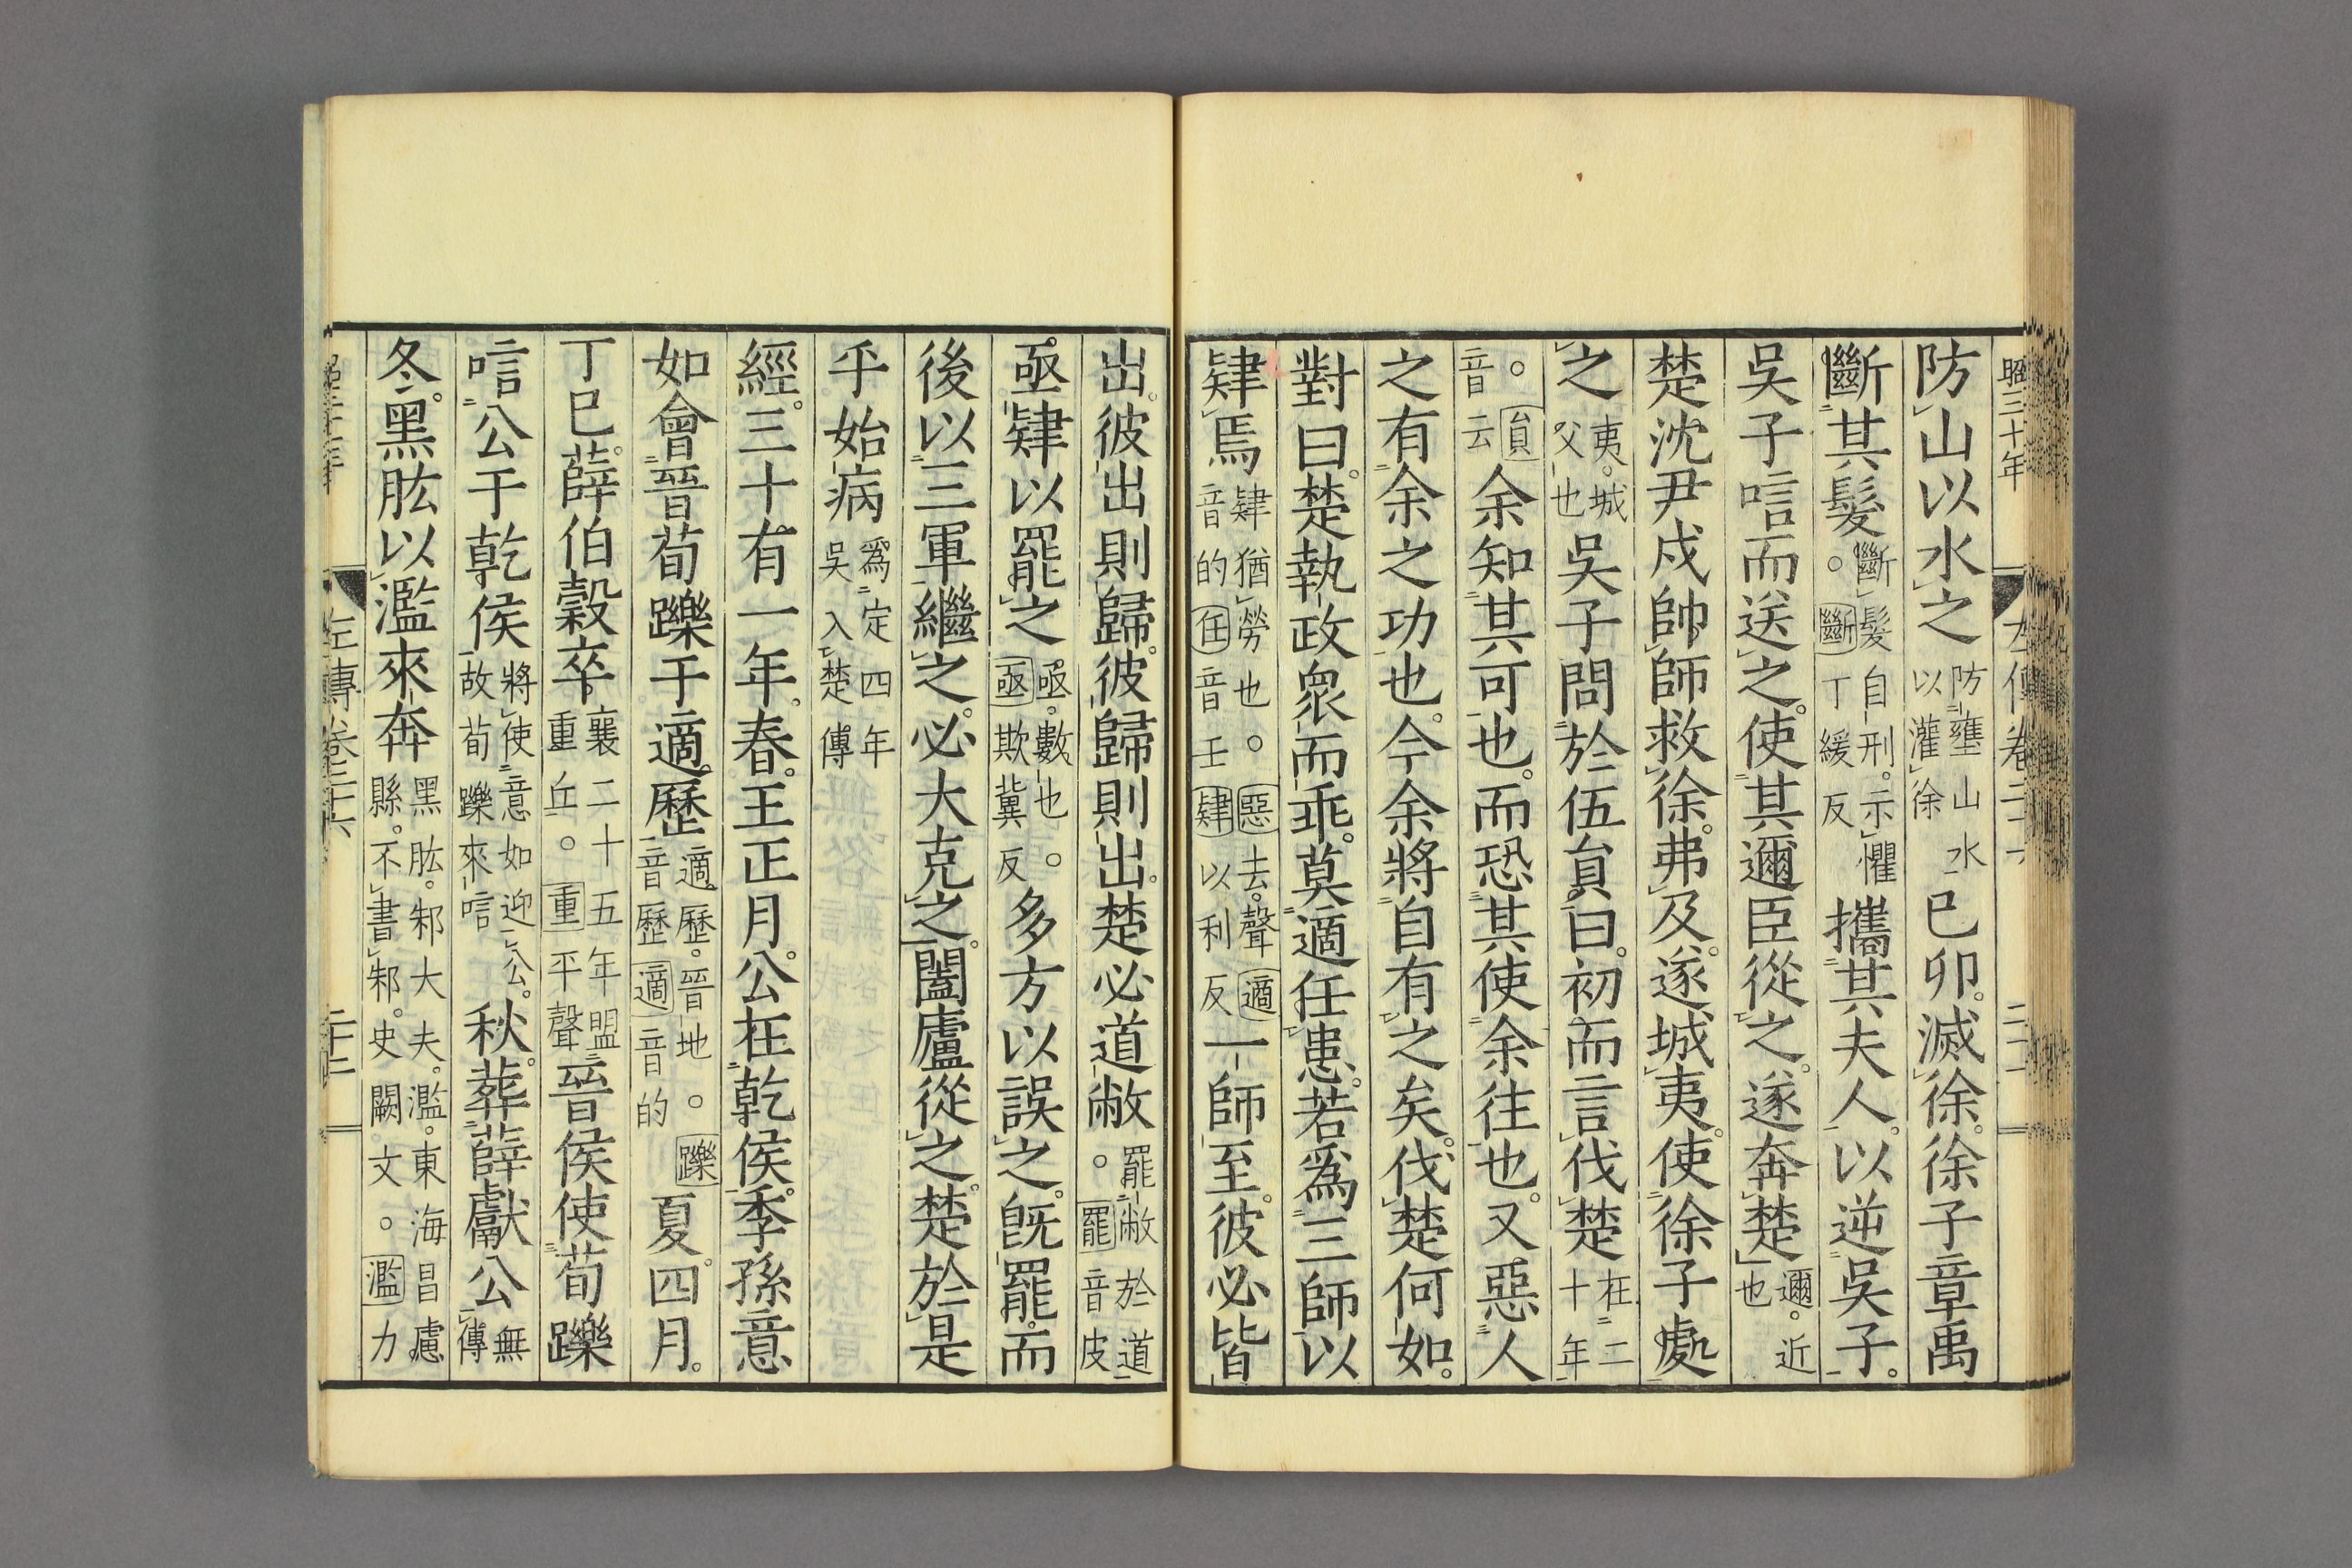 昭三十年 左傳卷二十六 二十一
防山以水之防壅山水以灌徐己卯滅徐徐子章禹
斷其髮斷髮自刑示懼。斷丁緩反攜其夫人以逆吳子
吳子唁而送之使其邇臣從之遂奔楚邇近也
楚沈尹戌帥師救徐弗及遂城夷使徐子處
之夷城父也吳子問於伍員曰初而言伐楚在二十年
。員音云余知其可也而恐其使余往也又惡人
之有余之功也今余將自有之矣伐楚何如
對曰楚執政衆而乖莫適任患若爲三師以
肄焉肄猶勞也。惡去聲適音的任音壬肄以利反一師至彼必皆
出彼出則歸彼歸則出楚必道敝罷敝於道。罷音皮
亟肄以罷之亟數也。亟欺冀反多方以誤之旣罷而
後以三軍繼之必大克之闔廬從之楚於是
乎始病爲定四年吳入楚傳
經三十有一年春王正月公在乾侯季孫意
如會晉荀躒于適歷適歷晉地。躒音歷適音的夏四月
丁巳薛伯穀卒襄二十五年盟重丘。重平聲晉侯使荀躒
唁公于乾侯將使意如迎公故荀躒來唁秋葬薛獻公無傳
冬黑肱以濫來奔黑肱邾大夫濫東海昌慮縣不書邾史闕文。濫力
左傳卷二十六